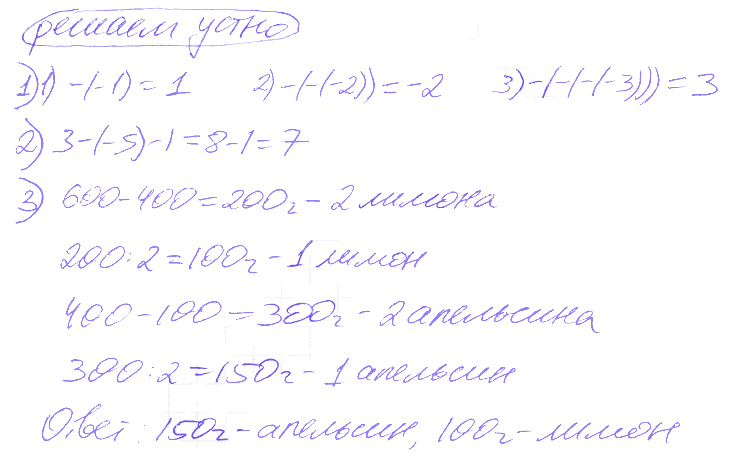 решаем устно
1) 1) -(-1) = 1 2) -(-(-2)) = -2 3) -(-(-(-3))) = 3
2) 3-(-5)-1 = 8-1 = 7
3) 600-400 = 200г - 2 лимона
200:2 = 100г - 1 лимон
400-100 = 300г - 2 апельсина
300:2 = 150г - 1 апельсин
Ответ: 150г - апельсин, 100г - лимон